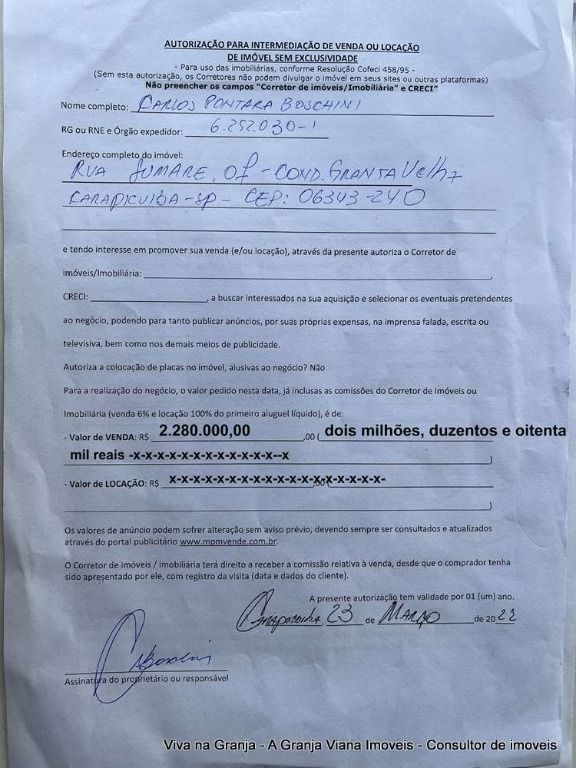 AUTORIZAÇÃO PARA INTERMEDIAÇÃO DE VENDA OU LOCAÇÃO
DE IMÓVEL SEM EXCLUSIVIDADE
- Para uso das imobiliárias, conforme Resolução Cofeci 458/95 -
(Sem esta autorização, os Corretores não podem divulgar o imóvel em seus sites ou outras plataformas)
Não preencher os campos "Corretor de imóveis/Imobiliária" e CRECI"
Nome completo: CARLOS PONTARA BOSCHINI
RG ou RNE e Órgão expedidor: 6.252.030-1
Endereço completo do imóvel:
RUA SUMARE, 07 - COND. GRANJA VELHA
CARAPICUIBA - SP - CEP: 06343-240
e tendo interesse em promover sua venda (e/ou locação), através da presente autoriza o Corretor de
imóveis/Imobiliária:
CRECI: , a buscar interessados na sua aquisição e selecionar os eventuais pretendentes
ao negócio, podendo para tanto publicar anúncios, por suas próprias expensas, na imprensa falada, escrita ou
televisiva, bem como nos demais meios de publicidade.
Autoriza a colocação de placas no imóvel, alusivas ao negócio? Não
Para a realização do negócio, o valor pedido nesta data, já inclusas as comissões do Corretor de Imóveis ou
Imobiliária (venda 6% e locação 100% do primeiro aluguel líquido), é de:
- Valor de VENDA: R$ 2.280.000,00 ,00 ( dois milhões, duzentos e oitenta
mil reais -x-x-x-x-x-x-x-x-x-x-x-x--x )
- Valor de LOCAÇÃO: R$ x-x-x-x-x-x-x-x-x-x-x-x-x-x-x-x-x-x-
)
Os valores de anúncio podem sofrer alteração sem aviso prévio, devendo sempre ser consultados e atualizados
através do portal publicitário www.mpmvende.com.br.
O Corretor de imóveis / Imobiliária terá direito a receber a comissão relativa à venda, desde que o comprador tenha
sido apresentado por ele, com registro da visita (data e dados do cliente).
A presente autorização tem validade por 01 (um) ano.
23 de MARÇO de 2022
Assinatura do proprietário ou responsável
Viva na Granja - A Granja Viana Imoveis - Consultor de imoveis